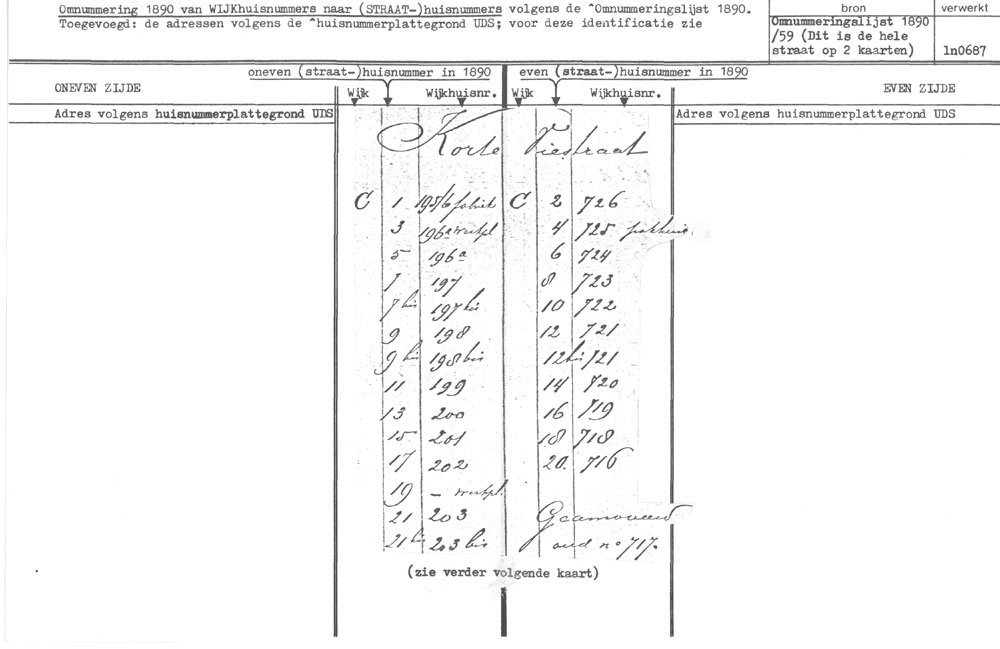 Omnummering 1890 van WIJKhuisnummers naar (STRAAT-)huisnummers volgens de ^Omnummeringslijst 1890.
Toegevoegd: de adressen volgens de ^huisnummerplattegrond UDS; voor deze identificatie zie
bron
Omnummeringslijst 1890
/59 (Dit is de hele
straat op 2 kaarten)
verwerkt
ln0687
oneven (straat-)huisnummer in 1890
even (straat-)huisnummer in 1890
ONEVEN ZIJDE
Wijk Wijkhuisnr. Wijk Wijkhuisnr.
EVEN ZIJDE
Adres volgens huisnummerplattegrond UDS
Adres volgens huisnummerplattegrond UDS
Korte Viestraat
C 1 195/6 fabriek C 2 726
3 196a werkpl 4 725 pakhuis.
5 196a 6 724
7 197 8 723
7 bis 197 bis 10 722
9 198 12 721
9 bis 198 bis 12 bis 721
11 199 14 720
13 200 16 719
15 201 18 718
17 202 20. 716
19 - werkpl.
21 203 Geamoveerd
21 bis 203 bis oud no 717.
(zie verder volgende kaart)